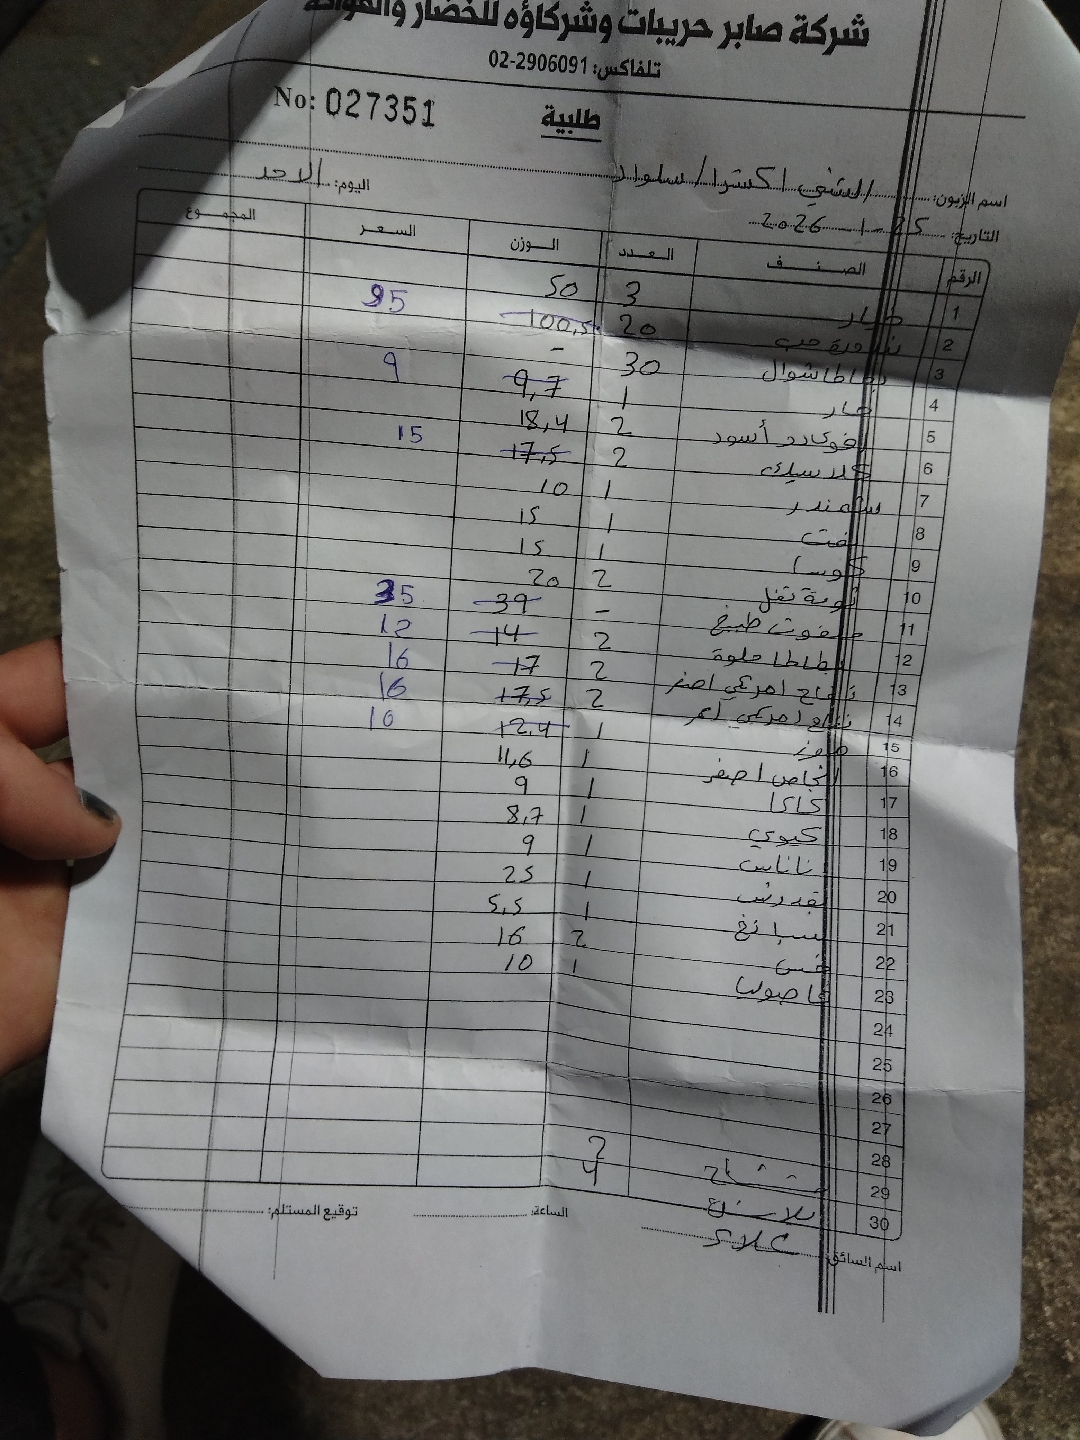 شركة صابر حريبات وشركاؤه للخضار والفواكه
تلفاكس: 02-2906091
No: 027351
طلبية
اسم الزبون: الشني اكسترا / سلواد
اليوم: الاحد
التاريخ: 25-1-2026
الرقم الصنف العدد الوزن السعر المجموع
1 خيار 3 50
2 بندورة حب 20 100,5 95
3 بطاطا شوال 30 -
4 حار 1 9,7 9
5 افوكادو أسود 2 18,4
6 كلاسيك 2 17,5 15
7 شمندر 1 10
8 لفت 1 15
9 كوسا 1 15
10 ثومة تفل 2 20
11 ملفوف طبيخ - 39 35
12 بطاطا حلوة 2 14 12
13 تفاح امريكي اصفر 2 17 16
14 تفاح امريكي احمر 2 17,5 16
15 موز 1 12,4 10
16 انجاص اصفر 1 11,6
17 كاكا 1 9
18 كيوي 1 8,7
19 اناناس 1 9
20 بقدونس 1 25
21 سبانخ 1 5,5
22 خس 2 16
23 فاصوليا 1 10
24
25
26
27
28
29 مشتاح 2
30 بلاستيك 4
اسم السائق: علاء
الساعة:
توقيع المستلم: